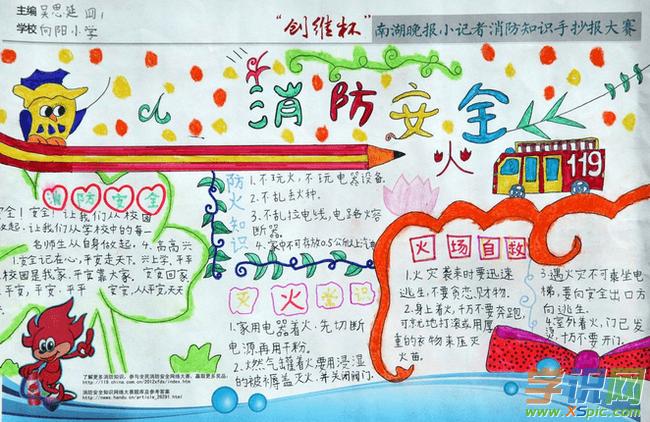 主编 吴思延 四1
学校 向阳小学
“创维杯”南湖晚报小记者消防知识手抄报大赛
消防安全
火
119
消防安全
安全！安全！让我们从校园
做起，让我们从学校中的每一
名师生从自身做起。4、高高兴
1.安全记在心，平安走天下。
校园是我家，平安靠大家。
平安，平安
防火知识
1.不玩火，不玩电器设备.
2.不乱丢火种.
3.不乱拉电线，电路熔
断器.
4.家中不可存放0.5公升以上汽油
灭火常识
1.家用电器着火.先切断
电源再用干粉.
2.燃气罐着火要用浸湿
的被褥盖灭火，并关闭阀门.
火场自救
1.火灾袭来时要迅速
逃生，不要贪恋财物.
2.身上着火，千万不要奔跑，
可就地打滚或用厚
重的衣物来压灭
火苗.
3.遇火灾不可乘坐电
梯，要向安全出口方
向逃生.
4.室外着火，门已发
烫，千万不要开门.
了解更多消防知识，参与全民消防安全网络大赛，赢取更多奖品：
http://119.china.com.cn/2012xfds/index.htm
消防安全知识网络大赛题库及参考答案：
http://news.handu.cn/article_26291.html
学识网
www.XSpic.com